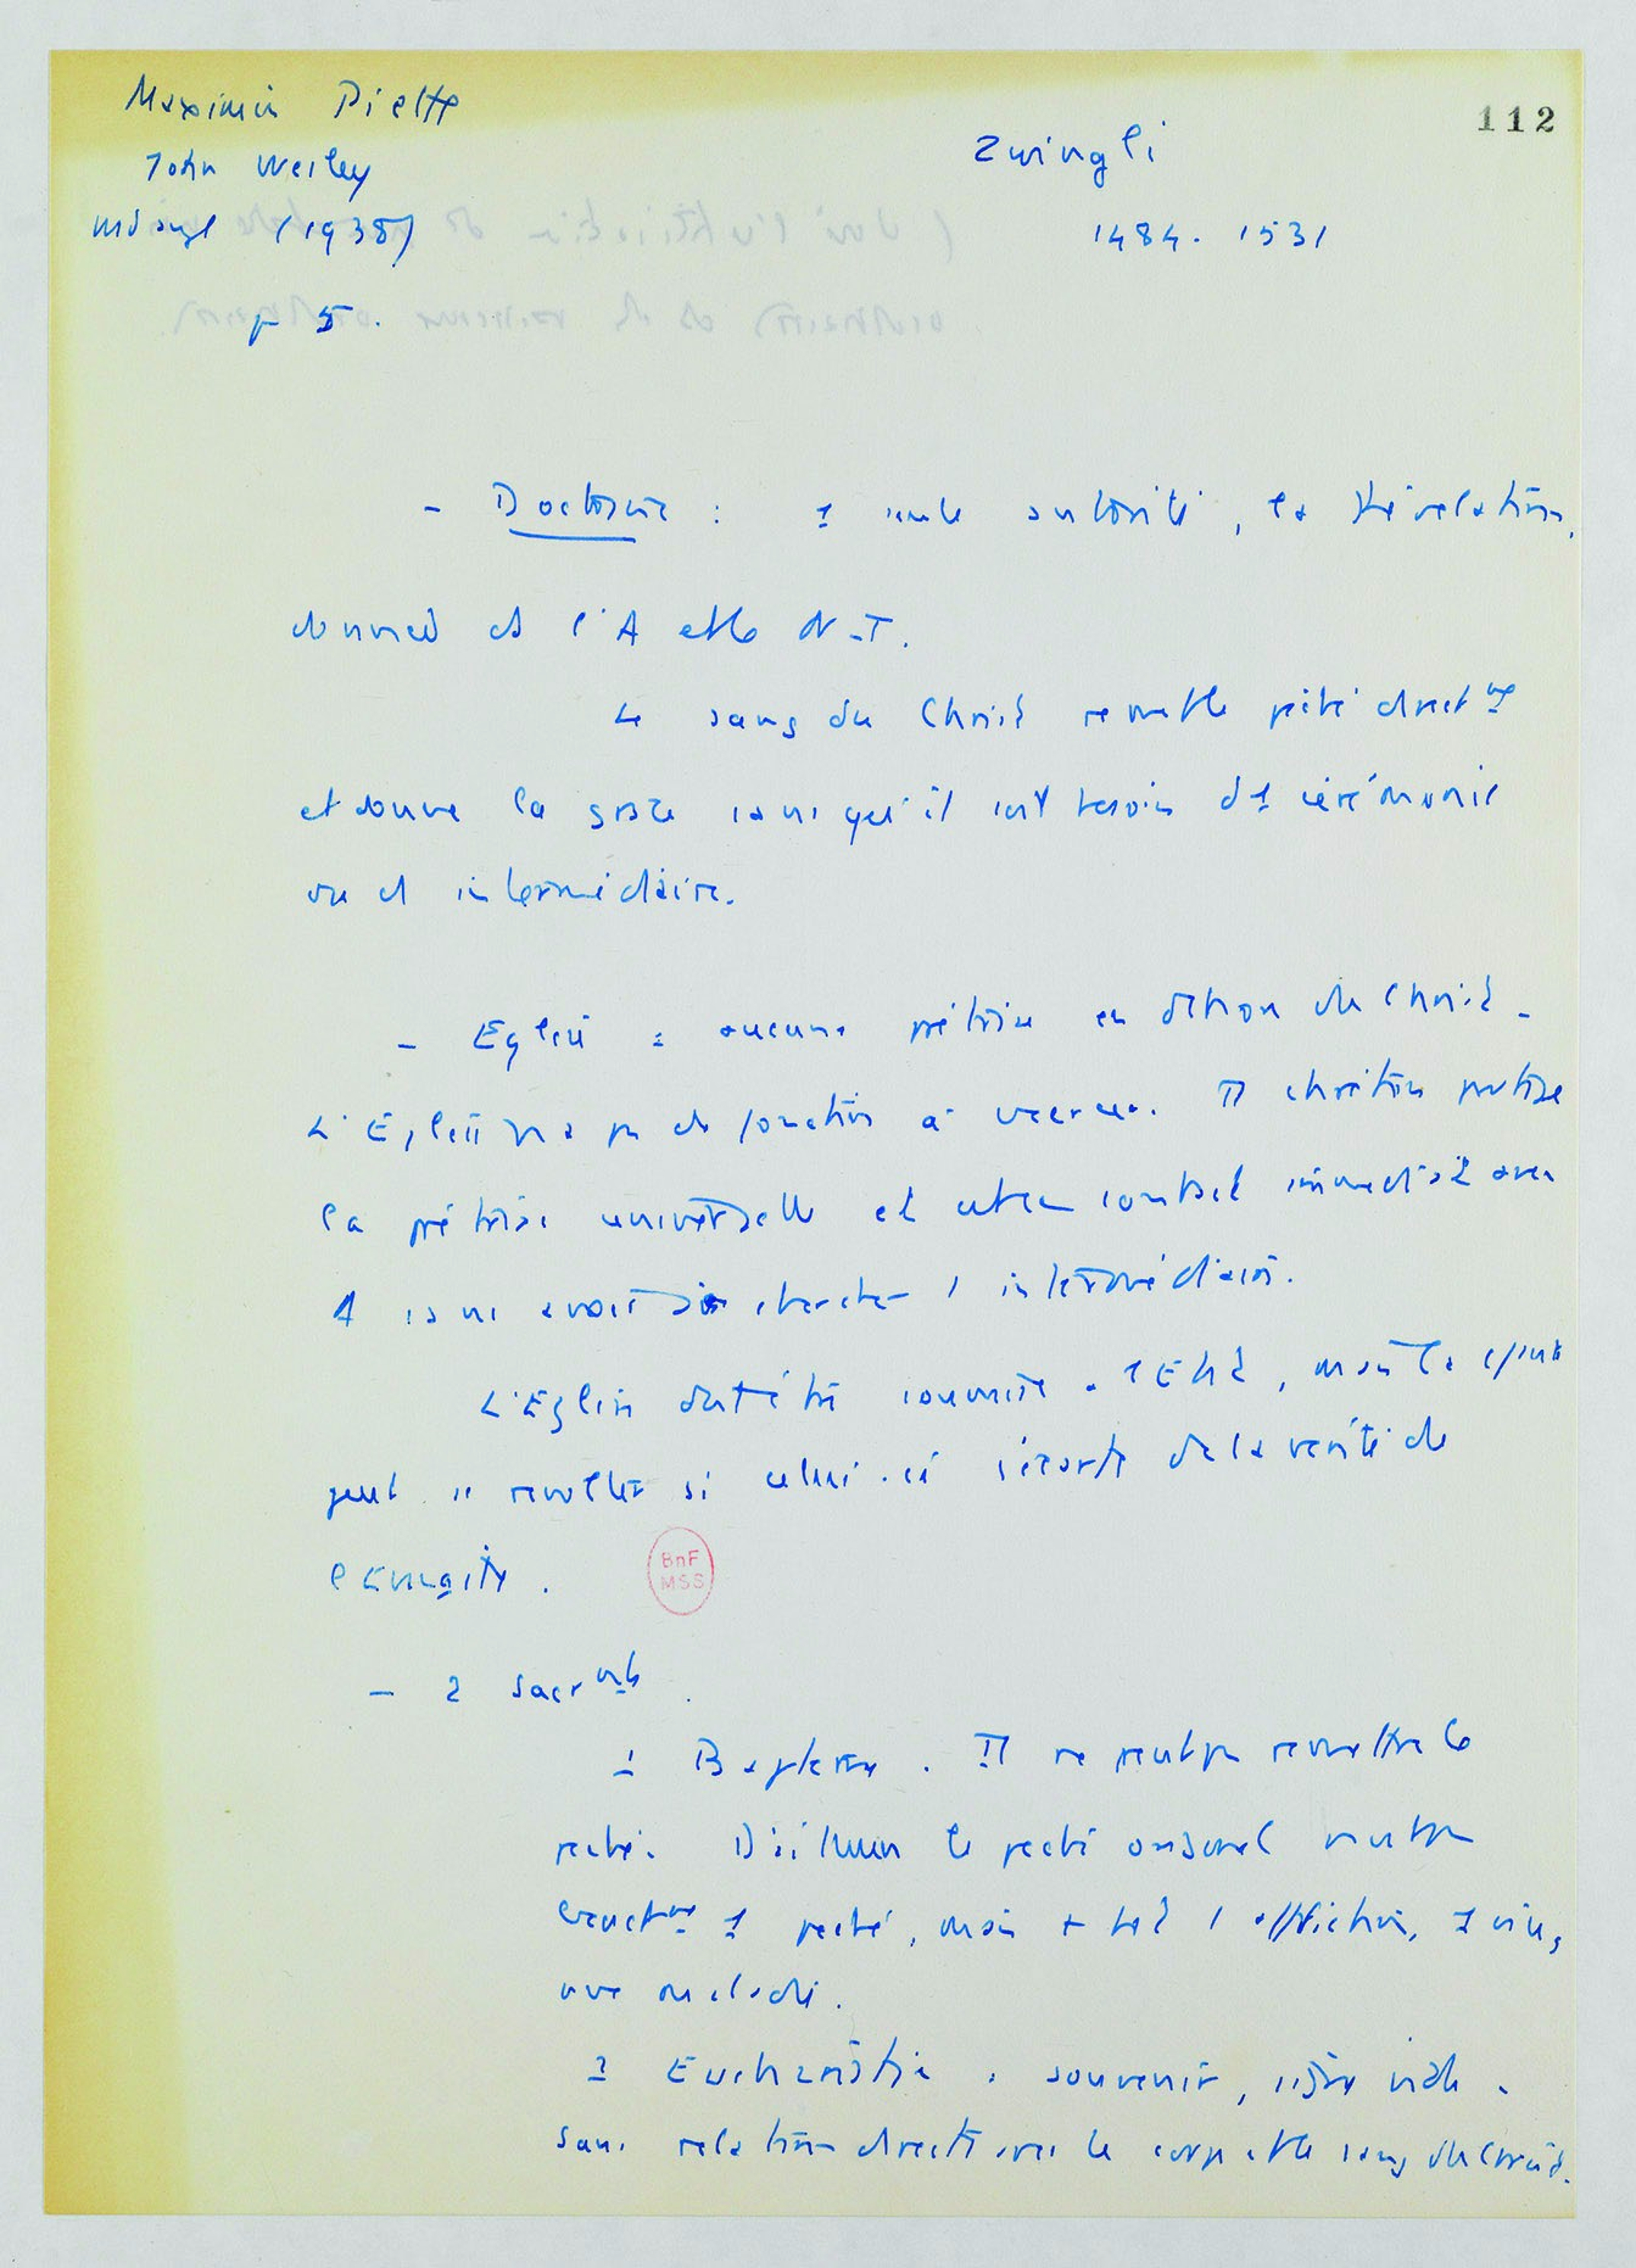 Maximin Piette
John Wesley
(1938)
p 5.
Zwingli
1484. 1531
112
- Doctrine : 1 seule autorité, la Révélation,
donnée ds l'A et le N-T.
Le sang du Christ remet le péché direct^mt
et donne la grâce sans qu'il soit besoin d'1 cérémonie
ou d' intermédiaire.
- Eglise : aucune prêtrise en dehors du Christ -
L'Eglise n'a pas de fonction à exercer. Tt chrétien partage
la prêtrise universelle et entre en contact immédiat avec
sans avoir à chercher 1 intermédiaire.
L'Eglise doit être soumise à l'Etat, mais la
peut se révolter si celui-ci s'écarte de la vérité de
l'Evangile.
BnF
MSS
- 2 sacr^mts.
1 Baptême. Il ne peut pas remettre le
péché. D'ailleurs le péché originel n'est pas
exact^mt 1 péché, mais + tôt 1 affliction, 1 vice,
une maladie.
2 Eucharistie : souvenir, signe vide.
Sans relation directe avec le corps et le sang du Christ.